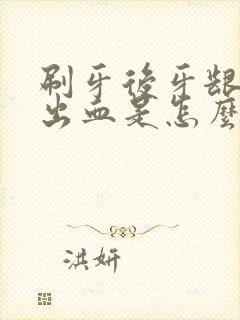 刷牙後牙龈
出血是怎麼
洪妍